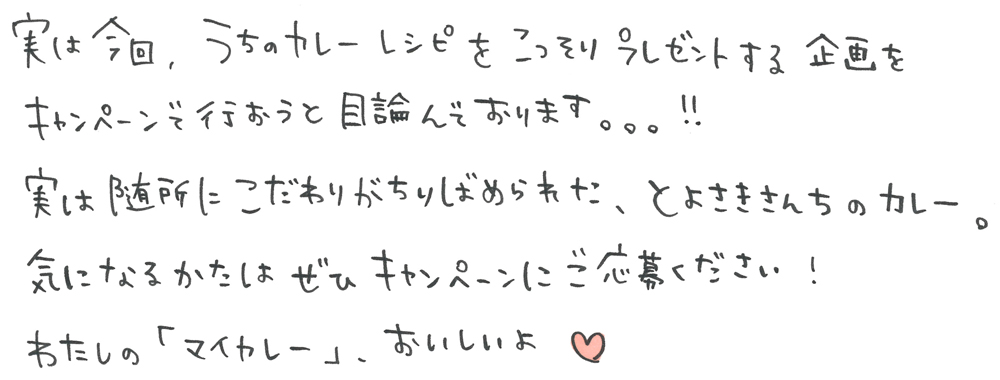 実は今回、うちのカレーレシピをこっそりプレゼントする企画を
キャンペーンで行おうと目論んでおります。。。!!
実は随所にこだわりがちりばめられた、とよさきさんちのカレー。
気になるかたはぜひキャンペーンにご応募ください!
わたしの「マイカレー」、おいしいよ♥